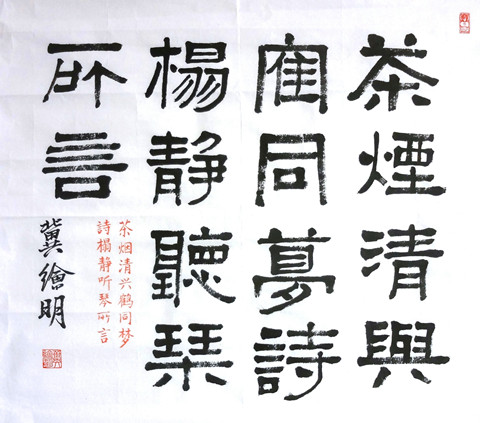 茶煙清興
寉同夢詩
榻静聽琹
所言
茶烟清兴鹤同梦
詩榻静听琴所言
冀繪明